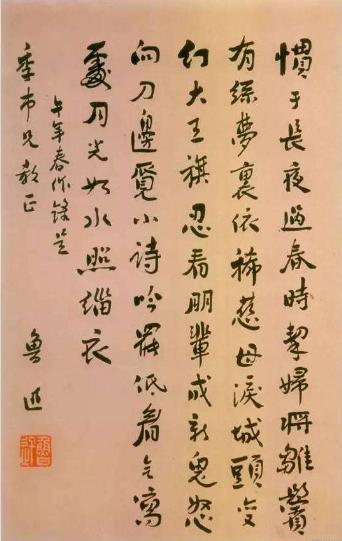 慣于長夜過春時挈婦將雛鬢
有絲夢裏依稀慈母淚城頭變
幻大王旗忍看朋輩成新鬼怒
向刀邊覓小詩吟罷低眉无寫
處月光如水照緇衣
午年春作錄呈
季市兄教正
魯迅
魯迅